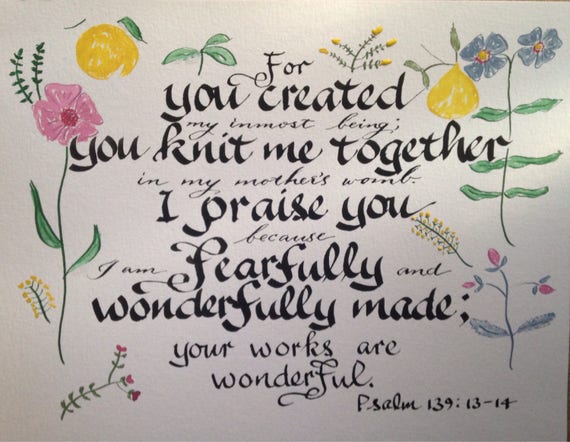 For
you created
my inmost being;
you knit me together
in my mother's womb.
I praise you
because
I am Fearfully and
wonderfully made;
your works are
wonderful.
Psalm 139:13-14